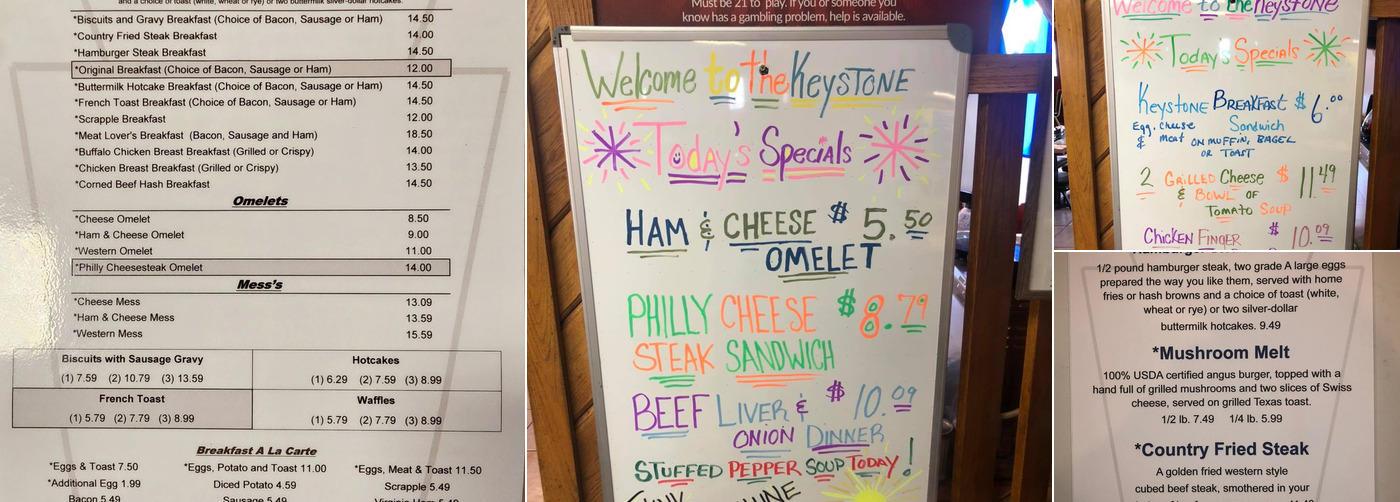 and a choice of toast (white, wheat or rye) or two buttermilk silver-dollar hotcakes.
*Biscuits and Gravy Breakfast (Choice of Bacon, Sausage or Ham) 14.50
*Country Fried Steak Breakfast 14.00
*Hamburger Steak Breakfast 14.50
*Original Breakfast (Choice of Bacon, Sausage or Ham) 12.00
*Buttermilk Hotcake Breakfast (Choice of Bacon, Sausage or Ham) 14.50
*French Toast Breakfast (Choice of Bacon, Sausage or Ham) 14.50
*Scrapple Breakfast 12.00
*Meat Lover's Breakfast (Bacon, Sausage and Ham) 18.50
*Buffalo Chicken Breast Breakfast (Grilled or Crispy) 14.00
*Chicken Breast Breakfast (Grilled or Crispy) 13.50
*Corned Beef Hash Breakfast 14.50
Omelets
*Cheese Omelet 8.50
*Ham & Cheese Omelet 9.00
*Western Omelet 11.00
*Philly Cheesesteak Omelet 14.00
Mess's
*Cheese Mess 13.09
*Ham & Cheese Mess 13.59
*Western Mess 15.59
Biscuits with Sausage Gravy
(1) 7.59 (2) 10.79 (3) 13.59
Hotcakes
(1) 6.29 (2) 7.59 (3) 8.99
French Toast
(1) 5.79 (2) 7.79 (3) 8.99
Waffles
(1) 5.79 (2) 7.79 (3) 8.99
Breakfast A La Carte
*Eggs & Toast 7.50 *Eggs, Potato and Toast 11.00 *Eggs, Meat & Toast 11.50
*Additional Egg 1.99 Diced Potato 4.59 Scrapple 5.49
Bacon 5.49 Sausage 5.49
Must be 21 to play. If you or someone you
know has a gambling problem, help is available.
Welcome to the KEYSTONE
Today's Specials
HAM & CHEESE $5.50
OMELET
PHILLY CHEESE $8.79
STEAK SANDWICH
BEEF LIVER & $10.09
ONION DINNER
STUFFED PEPPER SOUP TODAY!
Welcome to the Keystone
Today's Specials
Keystone BREAKFAST $6.00
Egg, cheese Sandwich
& meat ON MUFFIN, BAGEL
OR TOAST
2 GRILLED Cheese $11.49
& BOWL OF
TOMATO SOUP
CHICKEN FINGER $10.09
1/2 pound hamburger steak, two grade A large eggs
prepared the way you like them, served with home
fries or hash browns and a choice of toast (white,
wheat or rye) or two silver-dollar
buttermilk hotcakes. 9.49
*Mushroom Melt
100% USDA certified angus burger, topped with a
hand full of grilled mushrooms and two slices of Swiss
cheese, served on grilled Texas toast.
1/2 lb. 7.49 1/4 lb. 5.99
*Country Fried Steak
A golden fried western style
cubed beef steak, smothered in your